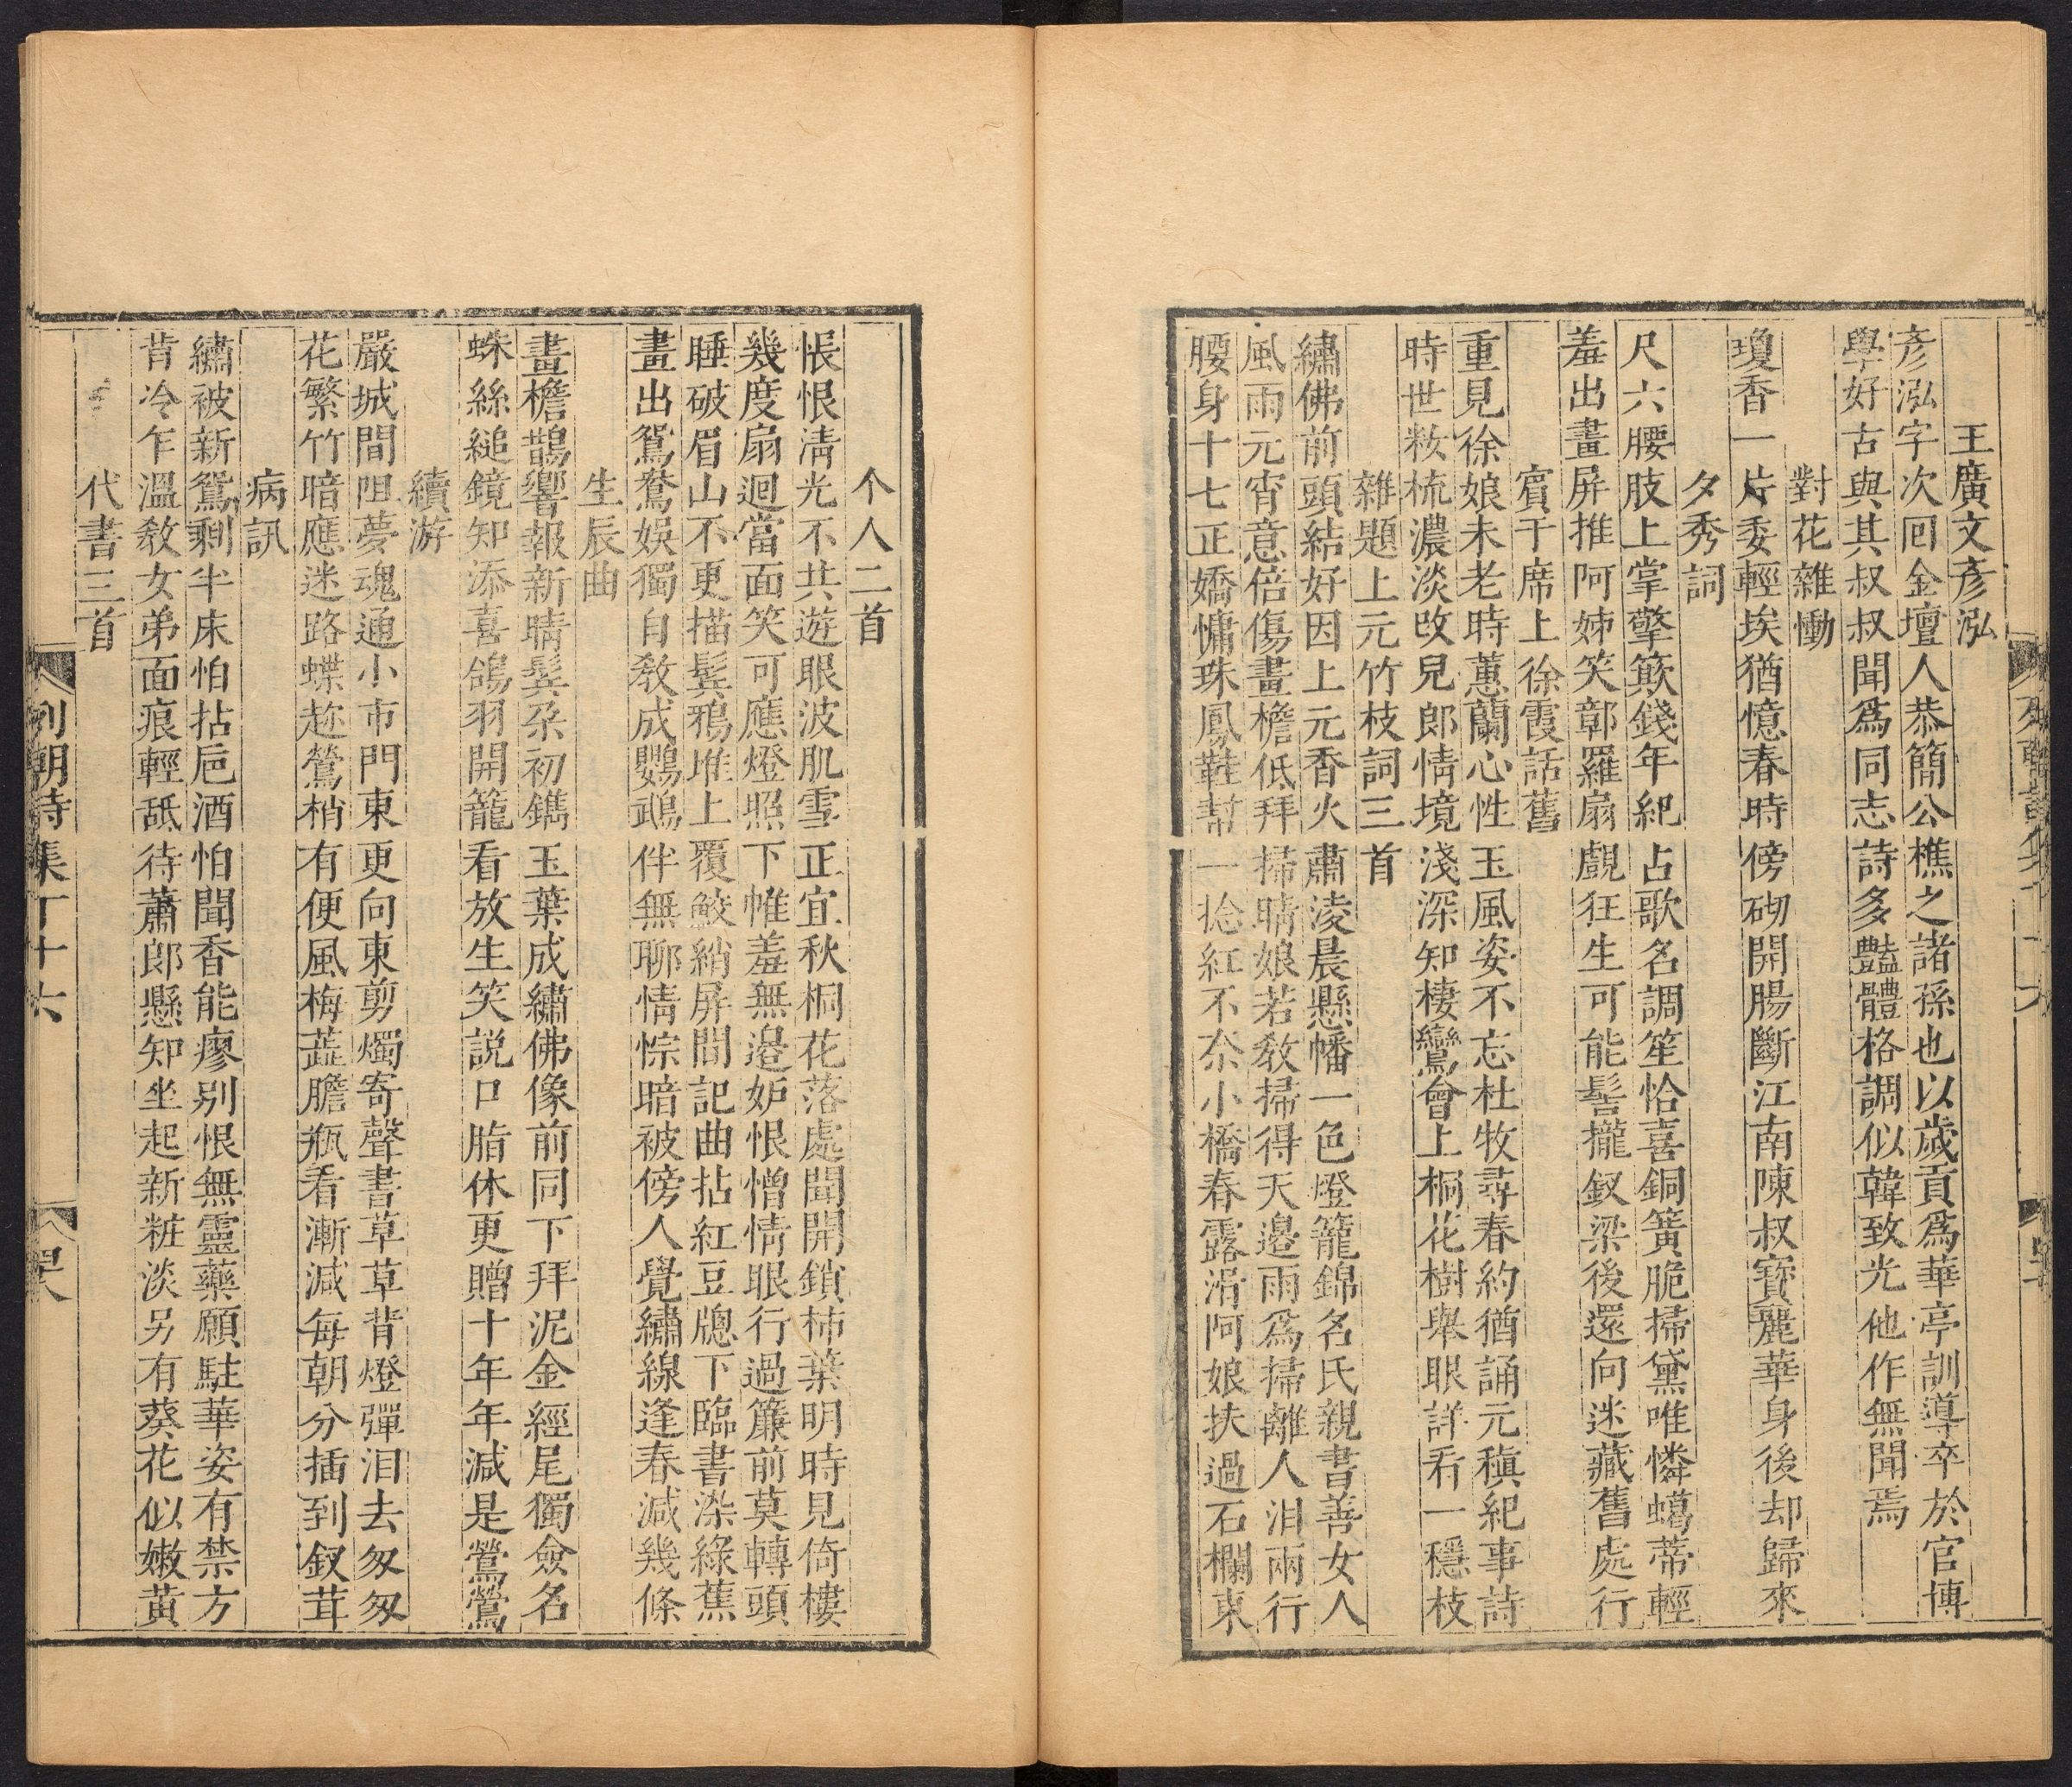 王廣文彥泓
彥泓字次回金壇人恭簡公樵之諸孫也以歲貢爲華亭訓導卒於官博
學好古與其叔叔聞爲同志詩多豔體格調似韓致光他作無聞焉
對花雜慟
瓊香一片委輕埃猶憶春時傍砌開腸斷江南陳叔寶麗華身後却歸來
夕秀詞
尺六腰肢上掌擎簸錢年紀占歌名調笙恰喜銅簧脆掃黛唯憐蠟蒂輕
羞出畫屏推阿姊笑鄣羅扇覷狂生可能髻攏釵梁後還向迷藏舊處行
賓于席上徐霞話舊
重見徐娘未老時蕙蘭心性玉風姿不忘杜牧尋春約猶誦元稹紀事詩
時世粧梳濃淡改兒郎情境淺深知棲鸞會上桐花樹舉眼詳看一穩枝
雜題上元竹枝詞三首
繡佛前頭結好因上元香火肅淩晨懸幡一色燈籠錦名氏親書善女人
風雨元宵意倍傷畫檐低拜掃晴娘若教掃得天邉雨爲掃離人泪兩行
腰身十七正嬌慵珠鳳鞋幫一捻紅不柰小橋春露滑阿娘扶過石欄東
个人二首
悵恨淸光不共遊眼波肌雪正宜秋桐花落處聞開鎖柿葉明時見倚樓
幾度扇迴當面笑可應燈照下帷羞無邉妒恨憎情眼行過簾前莫轉頭
睡破眉山不更描鬂鴉堆上覆鮫綃屏間記曲拈紅豆牕下臨書染綠蕉
畫出鴛鴦娛獨自教成鸚鵡伴無聊情悰暗被傍人覺繡線逢春減幾條
生辰曲
畫檐鵲響報新晴鬂朶初鐫玉葉成繡佛像前同下拜泥金經尾獨僉名
蛛絲縋鏡知添喜鴿羽開籠看放生笑說口脂休更贈十年年減是鶯鶯
續游
嚴城間阻夢魂通小市門東更向東剪燭寄聲書草草背燈彈泪去匆匆
花繁竹暗應迷路蝶趂鶯梢有便風梅蘂膽瓶看漸減每朝分插到釵茸
病訊
繡被新鴛剩半床怕拈巵酒怕聞香能瘳别恨無靈藥願駐華姿有禁方
背冷乍溫教女弟面痕輕舐待蕭郎懸知坐起新粧淡另有葵花似嫩黃
代書三首
列朝詩集丁十六